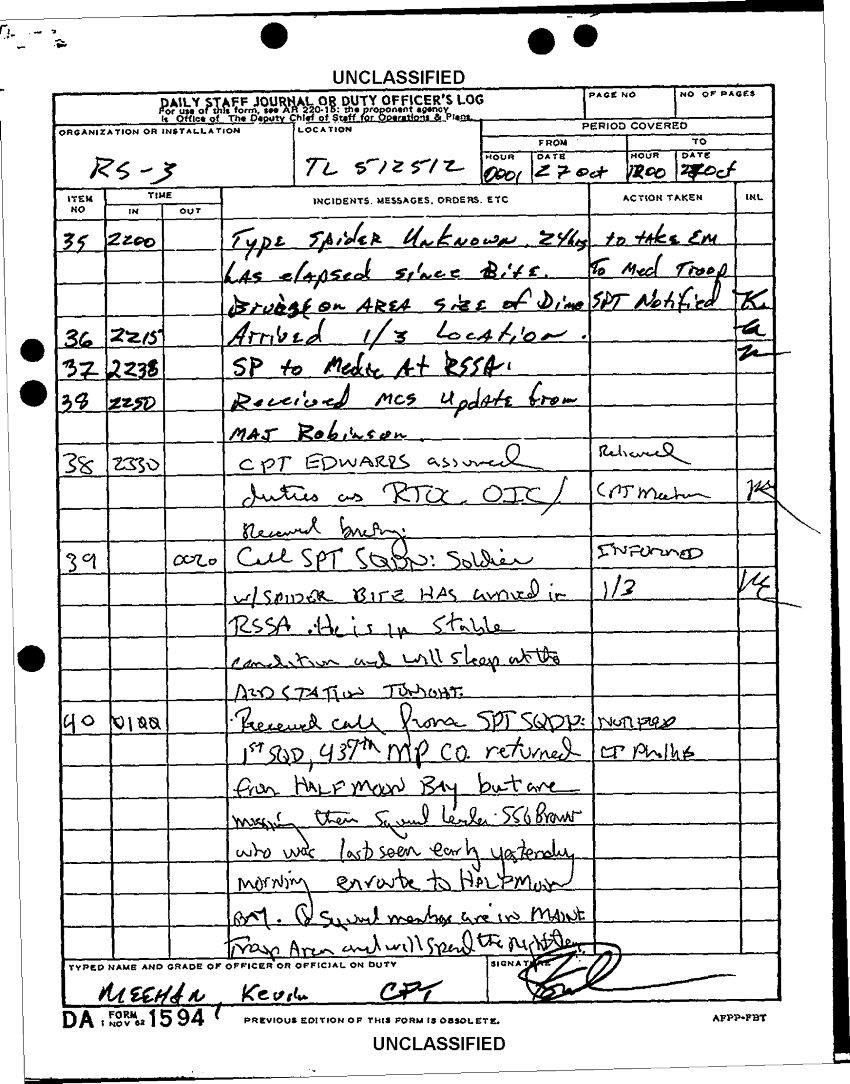 UNCLASSIFIED
DAILY STAFF JOURNAL OR DUTY OFFICER'S LOG
For use of this form, see AR 220-15; the proponent agency
is Office of The Deputy Chief of Staff for Operations & Plans.
PAGE NO
NO OF PAGES
ORGANIZATION OR INSTALLATION
RS-3
LOCATION
TL 512512
PERIOD COVERED
FROM
TO
HOUR
DATE
HOUR
DATE
0001
27 Oct
Oct
ITEM NO
TIME
IN
OUT
INCIDENTS, MESSAGES, ORDERS, ETC
ACTION TAKEN
INL
35 2200 Type Spider Unknown. 24hrs to take EM
has elapsed since Bite. To Med Troop
on AREA size of Dime SPT Notified
36 2215 Arrived 1/3 Location.
37 2238 SP to Medic At RSSA.
38 2250 Received MCS Update from
MAJ Robinson.
38 2330 CPT EDWARDS assumed Relieved
duties as RTOC OIC/ CPT Meehan
Received briefing.
39 0020 Call SPT SQDN: Soldier INFORMED
w/SPIDER BITE HAS arrived in 1/3
RSSA. He is in Stable
condition and will sleep at the
AID STATION TONIGHT.
40 0100 Received call from SPT SQDN: NOTIFIED
1ST SQD, 437th MP CO. returned LT Phillips
from HALF MOON BAY but are
missing their Squad Leader SSG Brown
who was last seen early yesterday
morning enroute to HALF MOON
BAY. Squad members are in MAINT
Troop Area and will spend the night there.
TYPED NAME AND GRADE OF OFFICER OR OFFICIAL ON DUTY
MEEHAN, Kevin CPT
SIGNATURE
DA FORM 1594
1 NOV 62
PREVIOUS EDITION OF THIS FORM IS OBSOLETE.
AFPP-FBT
UNCLASSIFIED